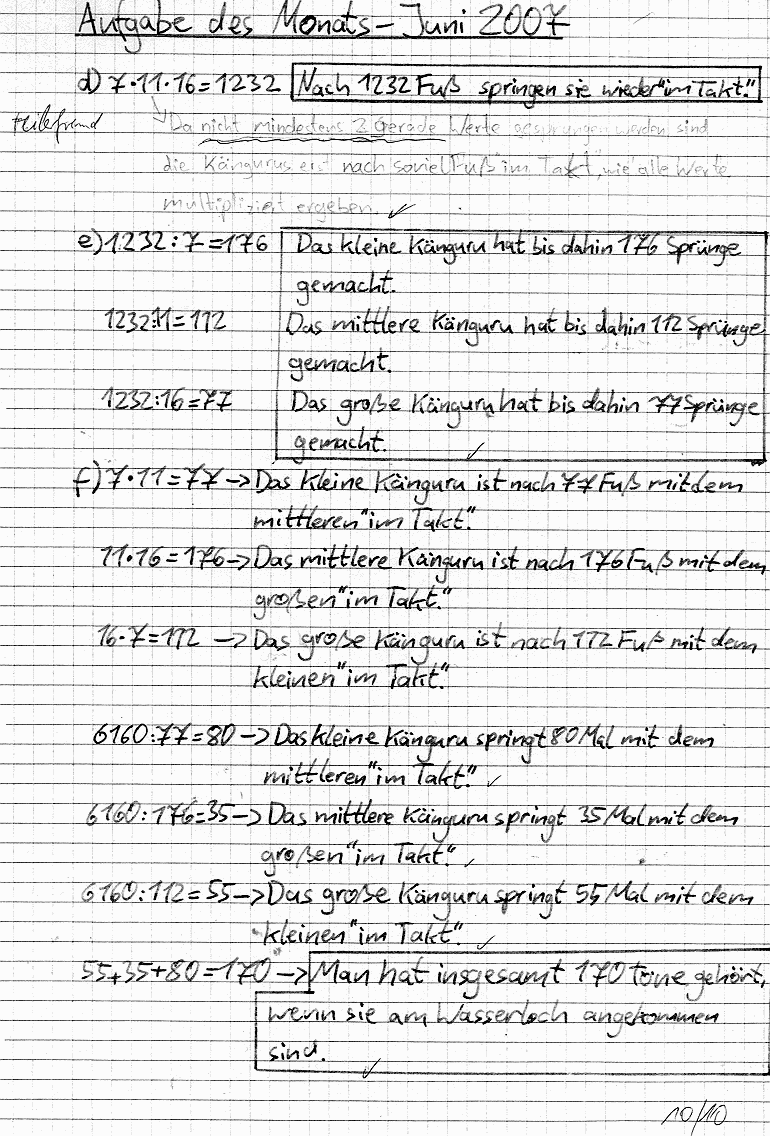 Aufgabe des Monats – Juni 2007
d) 7·11·16=1232 Nach 1232 Fuß springen sie wieder "im Takt."
teilefremd
Da nicht mindestens 2 Gerade Werte gesprungen werden sind
die Kängurus erst nach soviel Fuß "im Takt", wie alle Werte
multipliziert ergeben. ✓
e) 1232:7=176 Das kleine Känguru hat bis dahin 176 Sprünge
gemacht.
1232:11=112 Das mittlere Känguru hat bis dahin 112 Sprünge
gemacht.
1232:16=77 Das große Känguru hat bis dahin 77 Sprünge
gemacht. ✓
f) 7·11=77 -> Das kleine Känguru ist nach 77 Fuß mit dem
mittleren "im Takt."
11·16=176 -> Das mittlere Känguru ist nach 176 Fuß mit dem
großen "im Takt."
16·7=112 -> Das große Känguru ist nach 112 Fuß mit dem
kleinen "im Takt."
6160:77=80 -> Das kleine Känguru springt 80 Mal mit dem
mittleren "im Takt." ✓
6160:176=35 -> Das mittlere Känguru springt 35 Mal mit dem
großen "im Takt." ✓
6160:112=55 -> Das große Känguru springt 55 Mal mit dem
kleinen "im Takt." ✓
55+35+80=170 -> Man hat insgesamt 170 töne gehört,
wenn sie am Wasserloch angekommen
sind. ✓
10/10